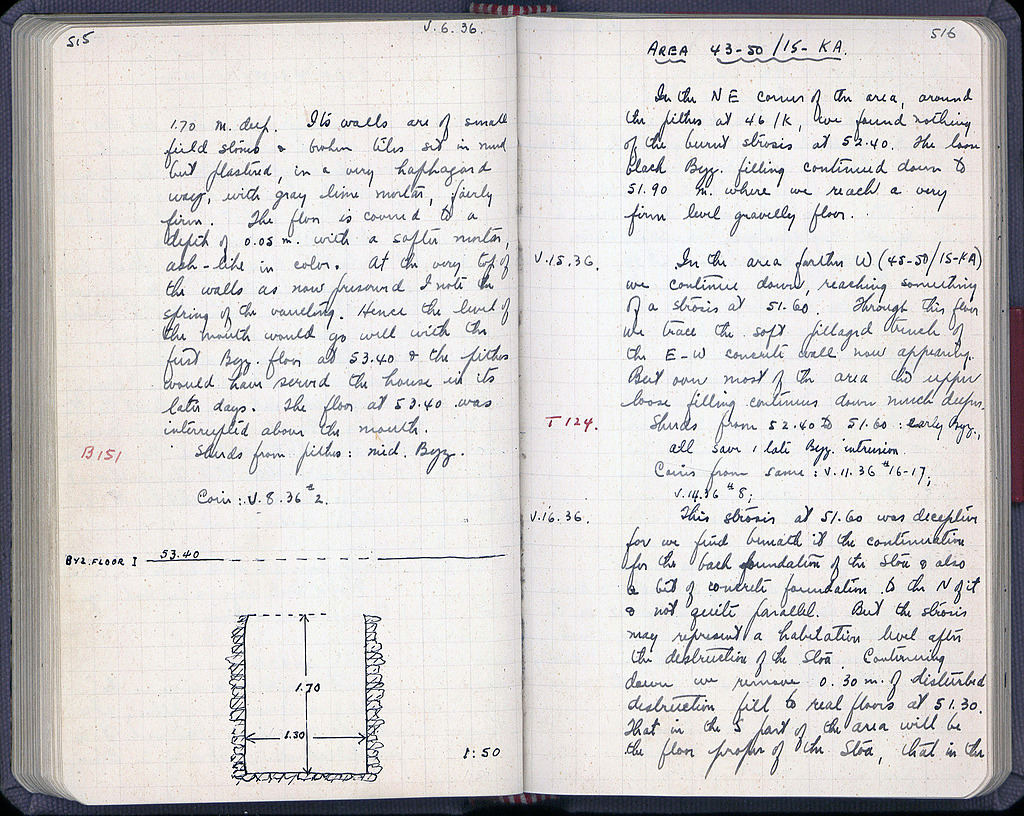 515
V.6.36.
1.70 m. deep. Its walls are of small
field stones & broken tiles set in mud
but plastered, in a very haphazard
way, with gray lime mortar, fairly
firm. The floor is covered to a
depth of 0.05 m. with a softer mortar,
ash-like in color. At the very top of
the walls as now preserved I note the
spring of the vaulting. Hence the level of
the mouth would go well with the
first Byz. floor at 53.40 & the pithos
would have served the house in its
later days. The floor at 53.40 was
interrupted above the mouth.
B151
Sherds from pithos: mid. Byz.
Coin: V.8.36 #2.
BYZ. FLOOR I 53.40
1.70
1.30
1:50
516
AREA 43-50/15-KA.
In the NE corner of the area, around
the pithos at 46/K, we found nothing
of the burnt strosis at 52.40. The loose
black Byz. filling continued down to
51.90 m. where we reach a very
firm level gravelly floor.
V.15.36.
In the area farther W (45-50/15-KA)
we continue down, reaching something
of a strosis at 51.60. Through this floor
we trace the soft pillaged trench of
the E-W concrete wall now appearing.
But over most of the area the upper
loose filling continues down much deeper.
T 124.
Sherds from 52.40 to 51.60: early Byz.,
all save 1 late Byz. intrusion.
Coins from same: V.11.36 #16-17;
V.14.36 #8;
V.16.36.
This strosis at 51.60 was deceptive
for we find beneath it the continuation
for the back foundation of the Stoa & also
a bit of concrete foundation to the N of it
& not quite parallel. But the strosis
may represent a habitation level after
the destruction of the Stoa. Continuing
down we remove 0.30 m. of disturbed
destruction fill to real floors at 51.30.
That in the S part of the area will be
the floor proper of the Stoa, that in the